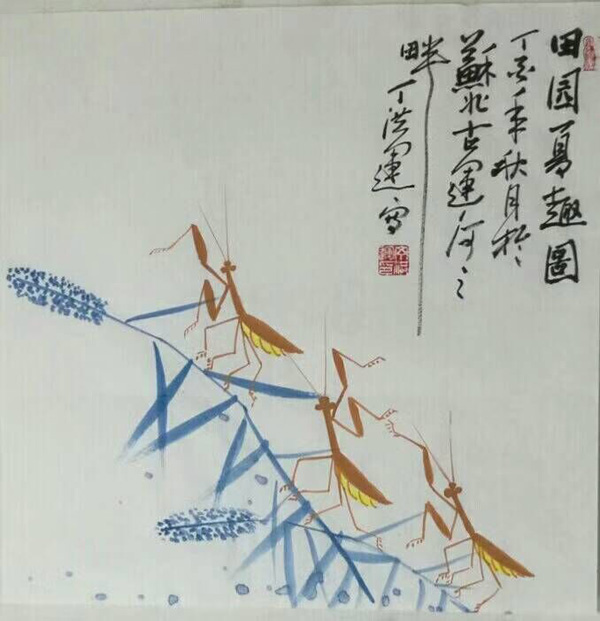 田园夏趣圖
丁亥年秋月於
蘇北古運河之
畔丁洪運写